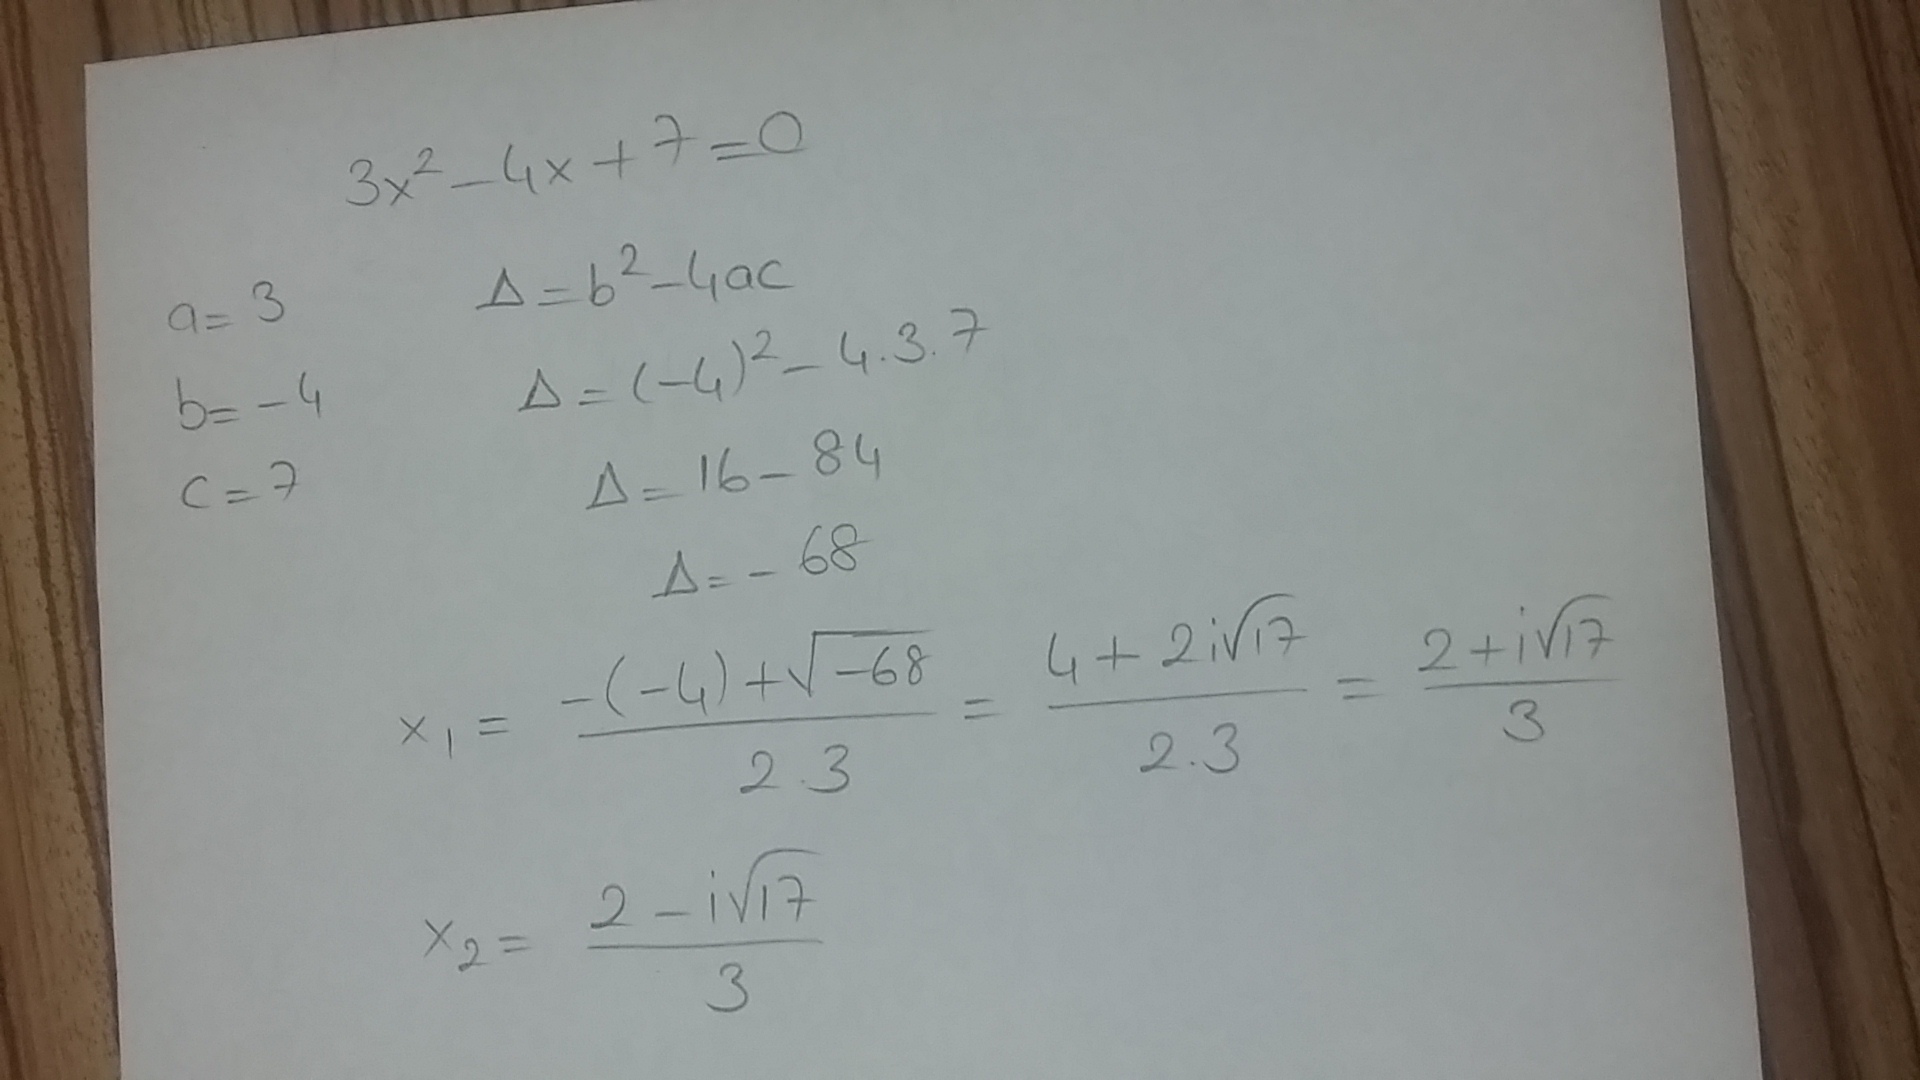 3x² - 4x + 7 = 0
a = 3
Δ = b² - 4ac
b = -4
Δ = (-4)² - 4.3.7
c = 7
Δ = 16 - 84
Δ = - 68
x₁ = (-(-4) + √-68) / (2.3) = (4 + 2i√17) / (2.3) = (2 + i√17) / 3
x₂ = (2 - i√17) / 3